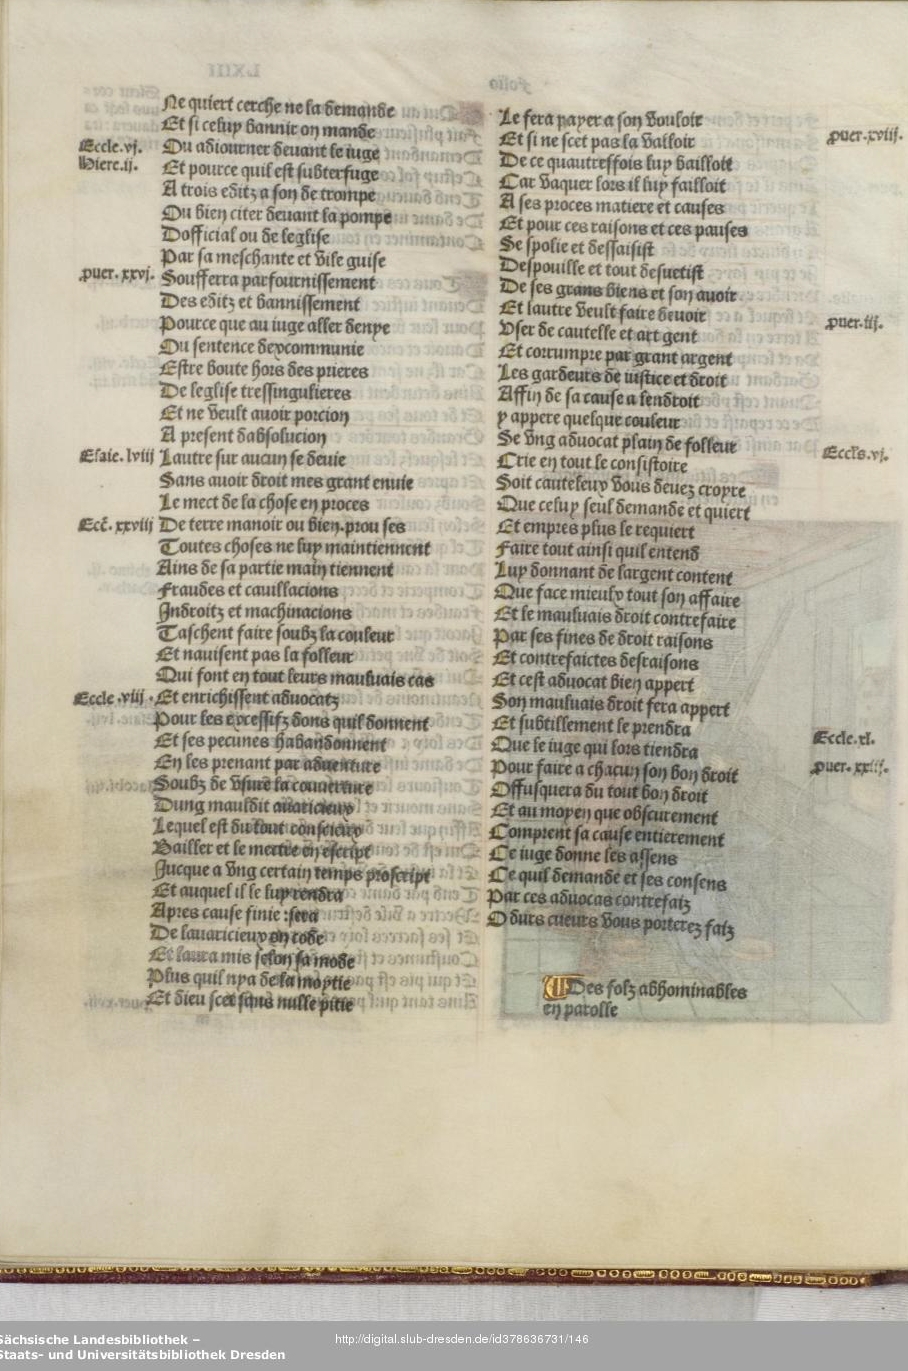 Ne quiert cerche ne la demande
Et si celuy bannir on mande
Eccle.vj.
Ou adiourner deuant le iuge
Hiere.ij.
Et pource quil est subterfuge
A trois editz a son de trompe
Ou bien citer deuant la pompe
Dofficial ou de leglise
Par sa meschante et vile guise
puer.xxvj.
Soufferra parfournissement
Des editz et bannissement
Pource que au iuge aller denye
Ou sentence dexcommunie
Estre boute hors des prieres
De leglise tressingulieres
Et ne veult auoir porcion
A present dabsolucion
Esaie.lviij
Lautre sur aucun se deuie
Sans auoir droit mes grant enuie
Le mect de la chose en proces
Ecc.xxviij
De terre manoir ou bien.prou ses
Toutes choses ne luy maintiennent
Ains de sa partie main tiennent
Fraudes et cauillacions
Indroitz et machinacions
Taschent faire soubz la couleur
Et nauisent pas la folleur
Qui font en tout leurs mauluais cas
Eccle.viij.
Et enrichissent aduocatz
Pour les excessifz dons quil donnent
Et ses pecunes habandonnent
En les prenant par aduenture
Soubz de vsure la couuerture
Dung mauldit auaricieux
Lequel est du tout conscieux
Bailler et le mectre en escript
Jucque a vng certain temps proscript
Et auquel il le luy rendra
Apres cause finie:sera
De lauaricieux en rode
Et laura mis selon sa mode
Plus quil nya de la moytie
Et dieu scet sans nulle pitie
Le fera payer a son vouloir
puer.xviij.
Et si ne scet pas la valloir
De ce quautreffois luy bailloit
Car vaquer lors il luy failloit
A ses proces matiere et causes
Et pour ces raisons et ces pauses
Se spolie et dessaisist
Despouille et tout desuestist
De ses grans biens et son auoir
Et lautre veult faire deuoir
puer.iij.
Vser de cautelle et art gent
Et corrumpre par grant argent
Les gardeurs de iustice et droit
Affin de sa cause a lendroit
y appere quelque couleur
Se vng aduocat plain de folleur
Eccls.vj.
Crie en tout le consistoire
Soit cauteleux vous deuez croyre
Que celuy seul demande et quiert
Et empres plus le requiert
Faire tout ainsi quil entend
Luy donnant de largent content
Que face mieulx tout son affaire
Et le mauluais droit contrefaire
Par ses fines de droit raisons
Et contrefaictes desraisons
Et cest aduocat bien appert
Son mauluais droit fera appert
Et subtillement le prendra
Eccle.xl.
Que le iuge qui lors tiendra
puer.xxiij.
Pour faire a chacun son bon droit
Offusquera du tout bon droit
Et au moyen que obscurement
Comprent sa cause entierement
Ce iuge donne les assens
Ce quil demande et ses consens
Par ces aduocas contrefaiz
O durs cueurs vous porterez faiz
Des folz abhominables
en parolle
Sächsische Landesbibliothek –
Staats- und Universitätsbibliothek Dresden
http://digital.slub-dresden.de/id378636731/146